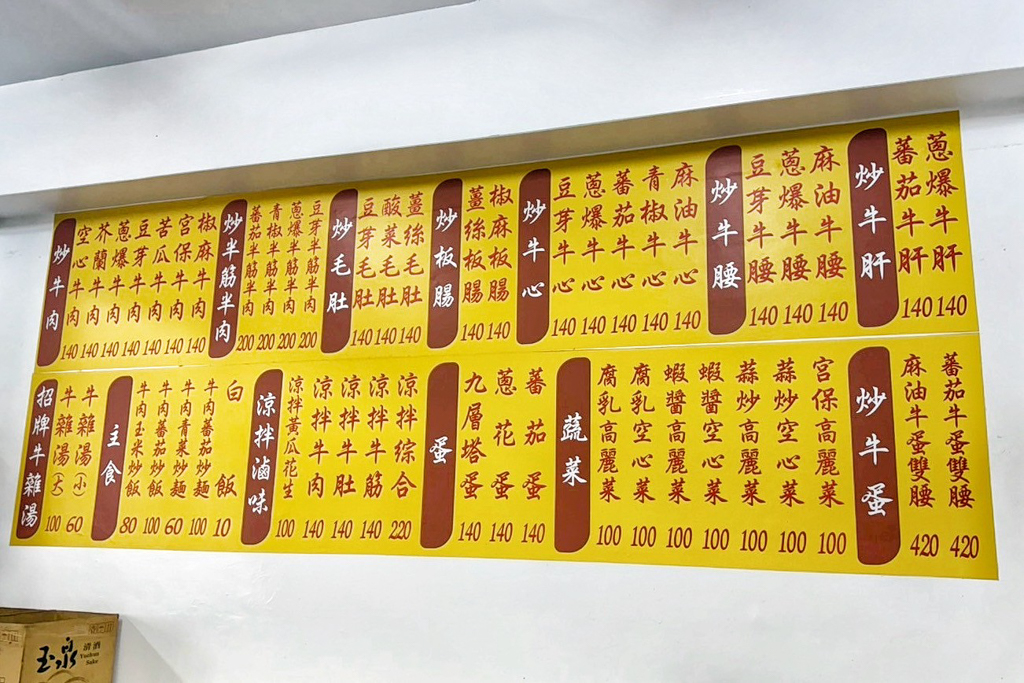 炒牛肉
空心牛肉 140
芥蘭牛肉 140
蔥爆牛肉 140
豆芽牛肉 140
苦瓜牛肉 140
宮保牛肉 140
椒麻牛肉 140
炒半筋半肉
蕃茄半筋半肉 200
青椒半筋半肉 200
蔥爆半筋半肉 200
豆芽半筋半肉 200
炒毛肚
豆芽毛肚 140
酸菜毛肚 140
薑絲毛肚 140
炒板腸
薑絲板腸 140
椒麻板腸 140
炒牛心
豆芽牛心 140
蔥爆牛心 140
蕃茄牛心 140
青椒牛心 140
麻油牛心 140
炒牛腰
豆芽牛腰 140
蔥爆牛腰 140
麻油牛腰 140
炒牛肝
蕃茄牛肝 140
蔥爆牛肝 140
招牌牛雜湯
牛雜湯(大) 100
牛雜湯(小) 60
主食
牛肉玉米炒飯 80
牛肉蕃茄炒飯 100
牛肉青菜炒麵 60
牛肉蕃茄炒麵 100
白飯 10
涼拌滷味
涼拌黃瓜花生 100
涼拌牛肉 140
涼拌牛肚 140
涼拌牛筋 140
涼拌綜合 220
蛋
九層塔蛋 140
蔥花蛋 140
蕃茄蛋 140
蔬菜
腐乳高麗菜 100
腐乳空心菜 100
蝦醬高麗菜 100
蝦醬空心菜 100
蒜炒高麗菜 100
蒜炒空心菜 100
宮保高麗菜 100
炒牛蛋
麻油牛蛋雙腰 420
蕃茄牛蛋雙腰 420
玉泉
清酒
Yuchun
Sake